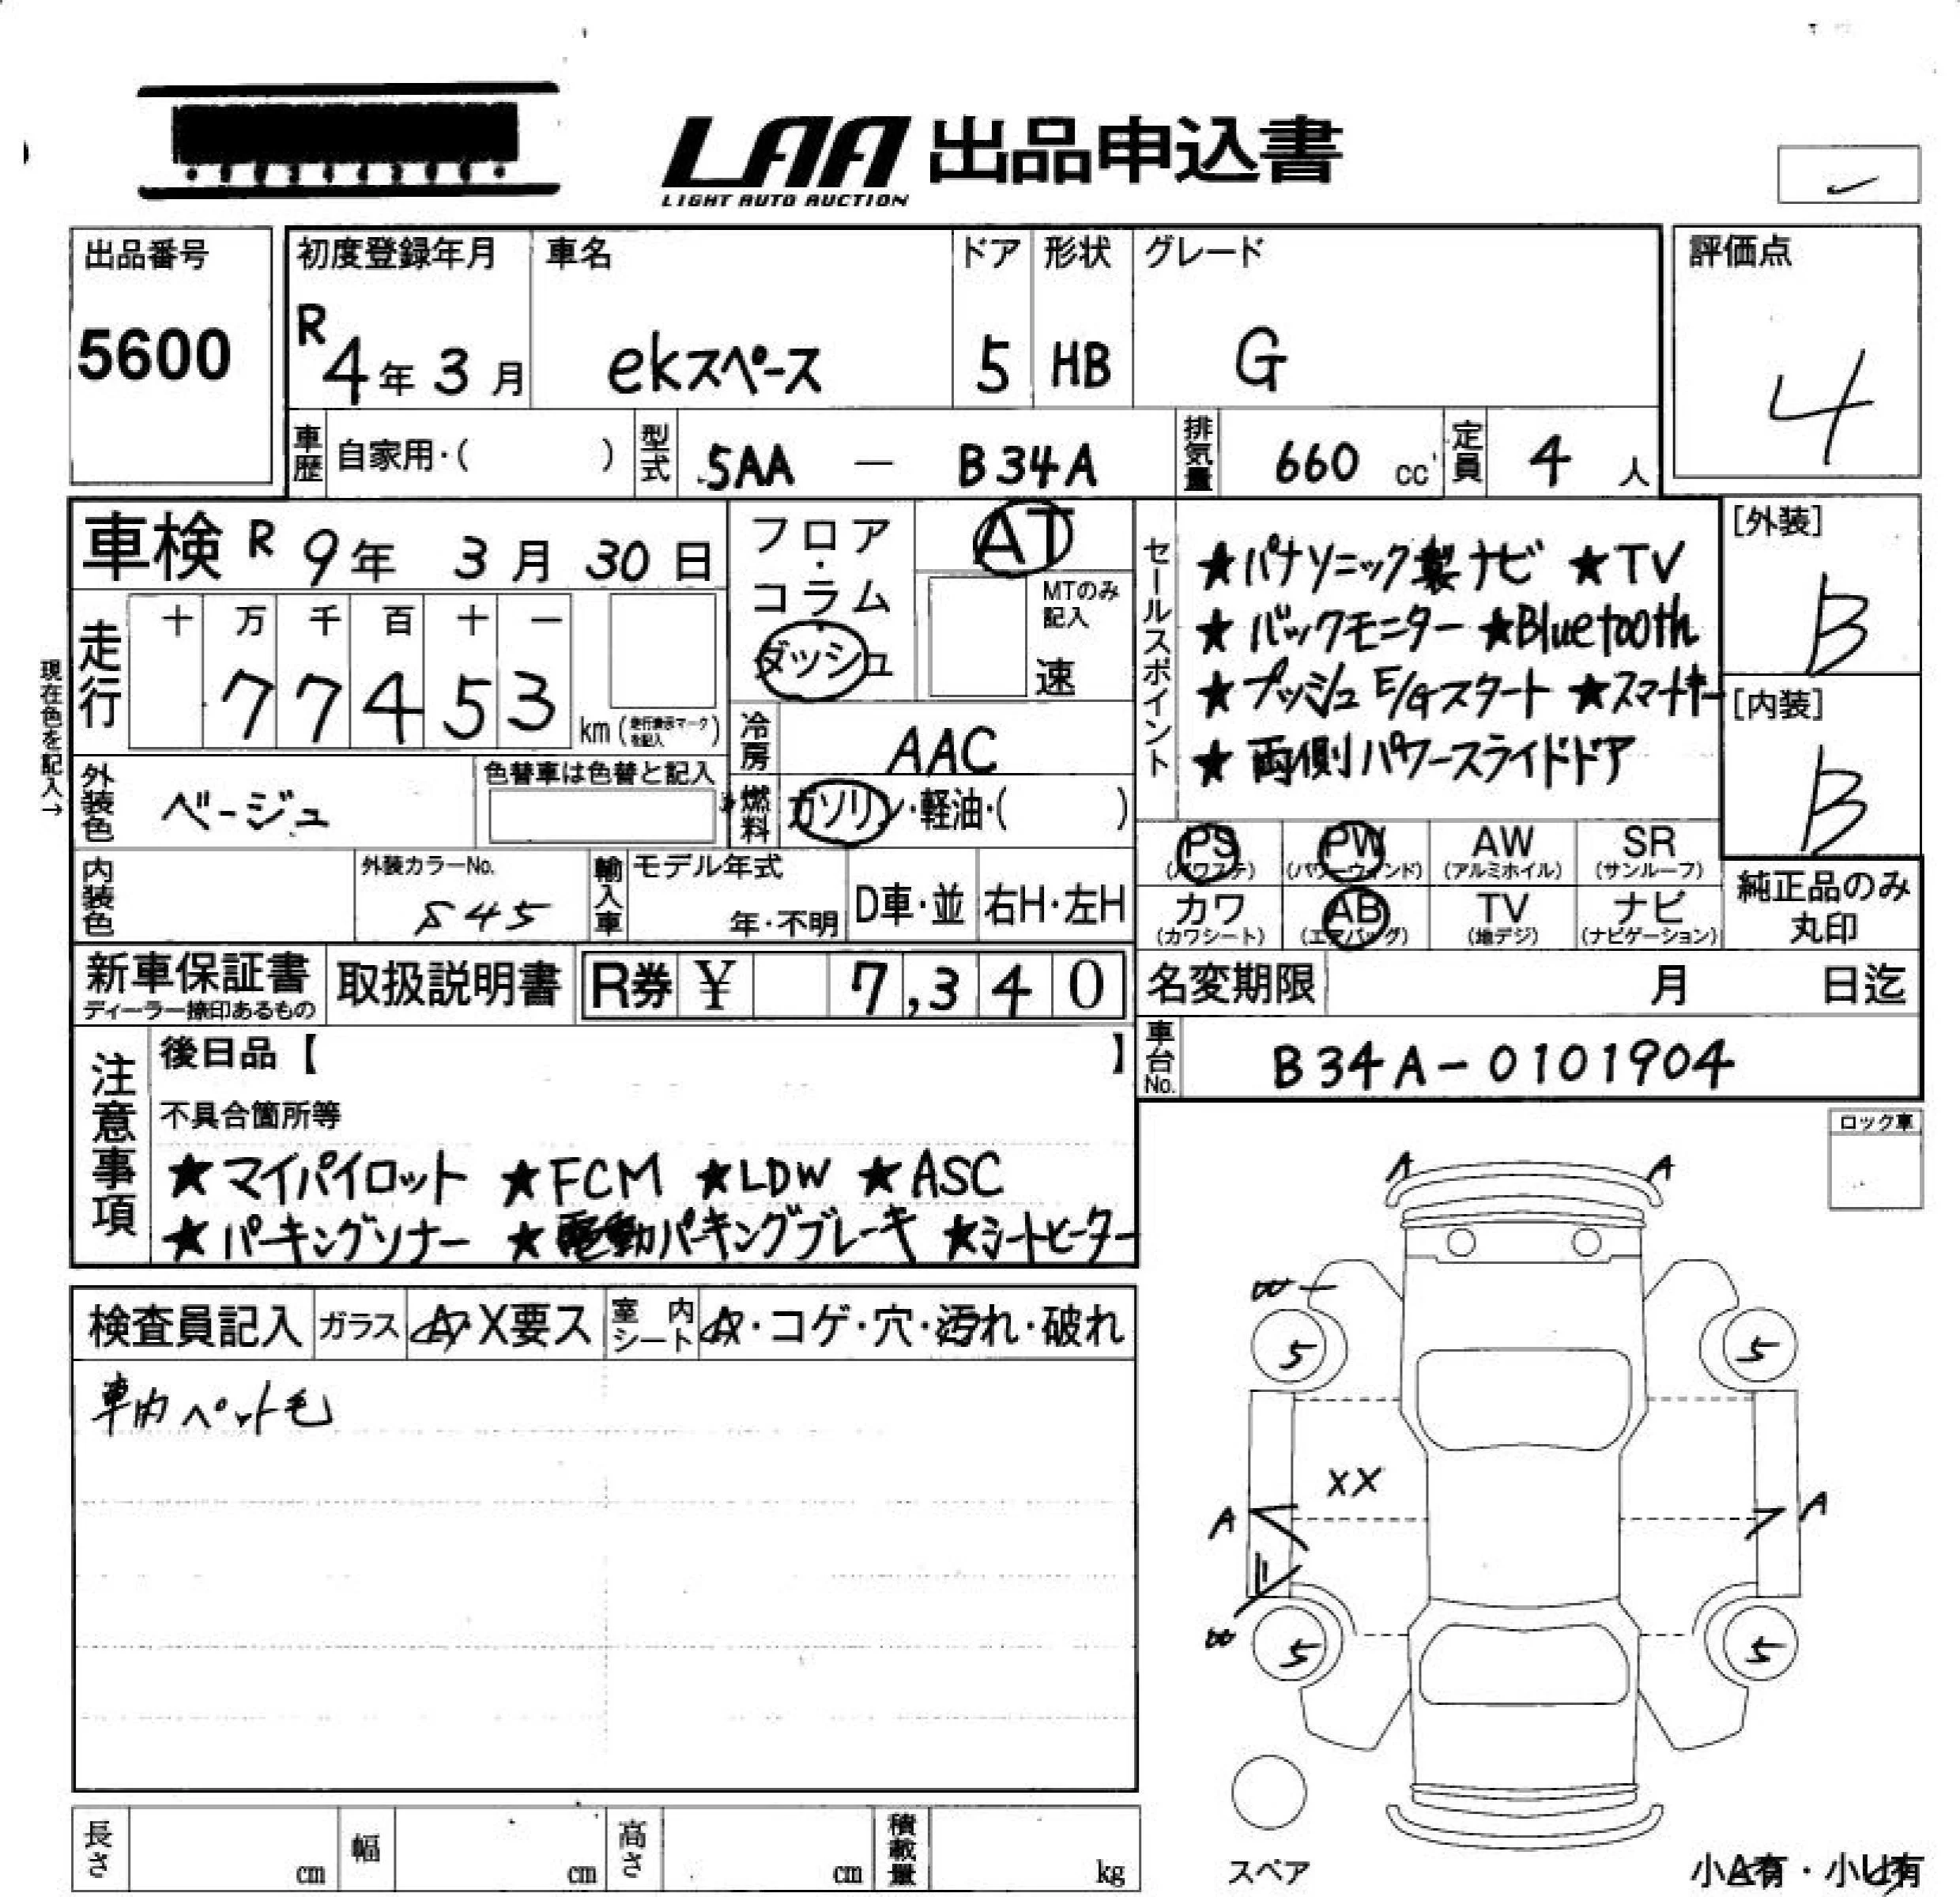 LAA 出品申込書
LIGHT AUTO AUCTION
出品番号
5600
初度登録年月
R4年3月
車名
ekスペース
ドア
5
形状
HB
グレード
G
評価点
4
車歴 自家用・( )
型式 5AA — B34A
排気量 660 cc
定員 4 人
車検 R 9年 3月 30日
走行
十 万 千 百 十 一
7 7 4 5 3 km (走行表示マークを記入)
現在色を記入→
フロア・コラム
ダッシュ
AT
MTのみ記入
速
冷房 AAC
燃料 ガソリン・軽油・( )
外装色 ベージュ
色替車は色替と記入
内装色
外装カラーNo.
S45
輸入車
モデル年式
年・不明
D車・並
右H・左H
セールスポイント
★パナソニック製ナビ ★TV
★バックモニター ★Bluetooth
★プッシュE/Gスタート ★スマートキー
★両側パワースライドドア
[外装]
B
[内装]
B
PS (パワステ)
PW (パワーウィンド)
AW (アルミホイル)
SR (サンルーフ)
カワ (カワシート)
AB (エアバッグ)
TV (地デジ)
ナビ (ナビゲーション)
純正品のみ
丸印
新車保証書
ディーラー捺印あるもの
取扱説明書
R券 ¥ 7,340
名変期限 月 日迄
車台No. B34A-0101904
注意事項
後日品【 】
不具合箇所等
★マイパイロット ★FCM ★LDW ★ASC
★パーキングソナー ★電動パーキングブレーキ ★シートヒーター
検査員記入
ガラス A・X要ス
室内シート ・コゲ・穴・汚れ・破れ
車内ペット毛
ロック車
A A
5 5
XX
A A
5 5
スペア
小A有・小U有
長さ cm
幅 cm
高さ cm
積載量 kg